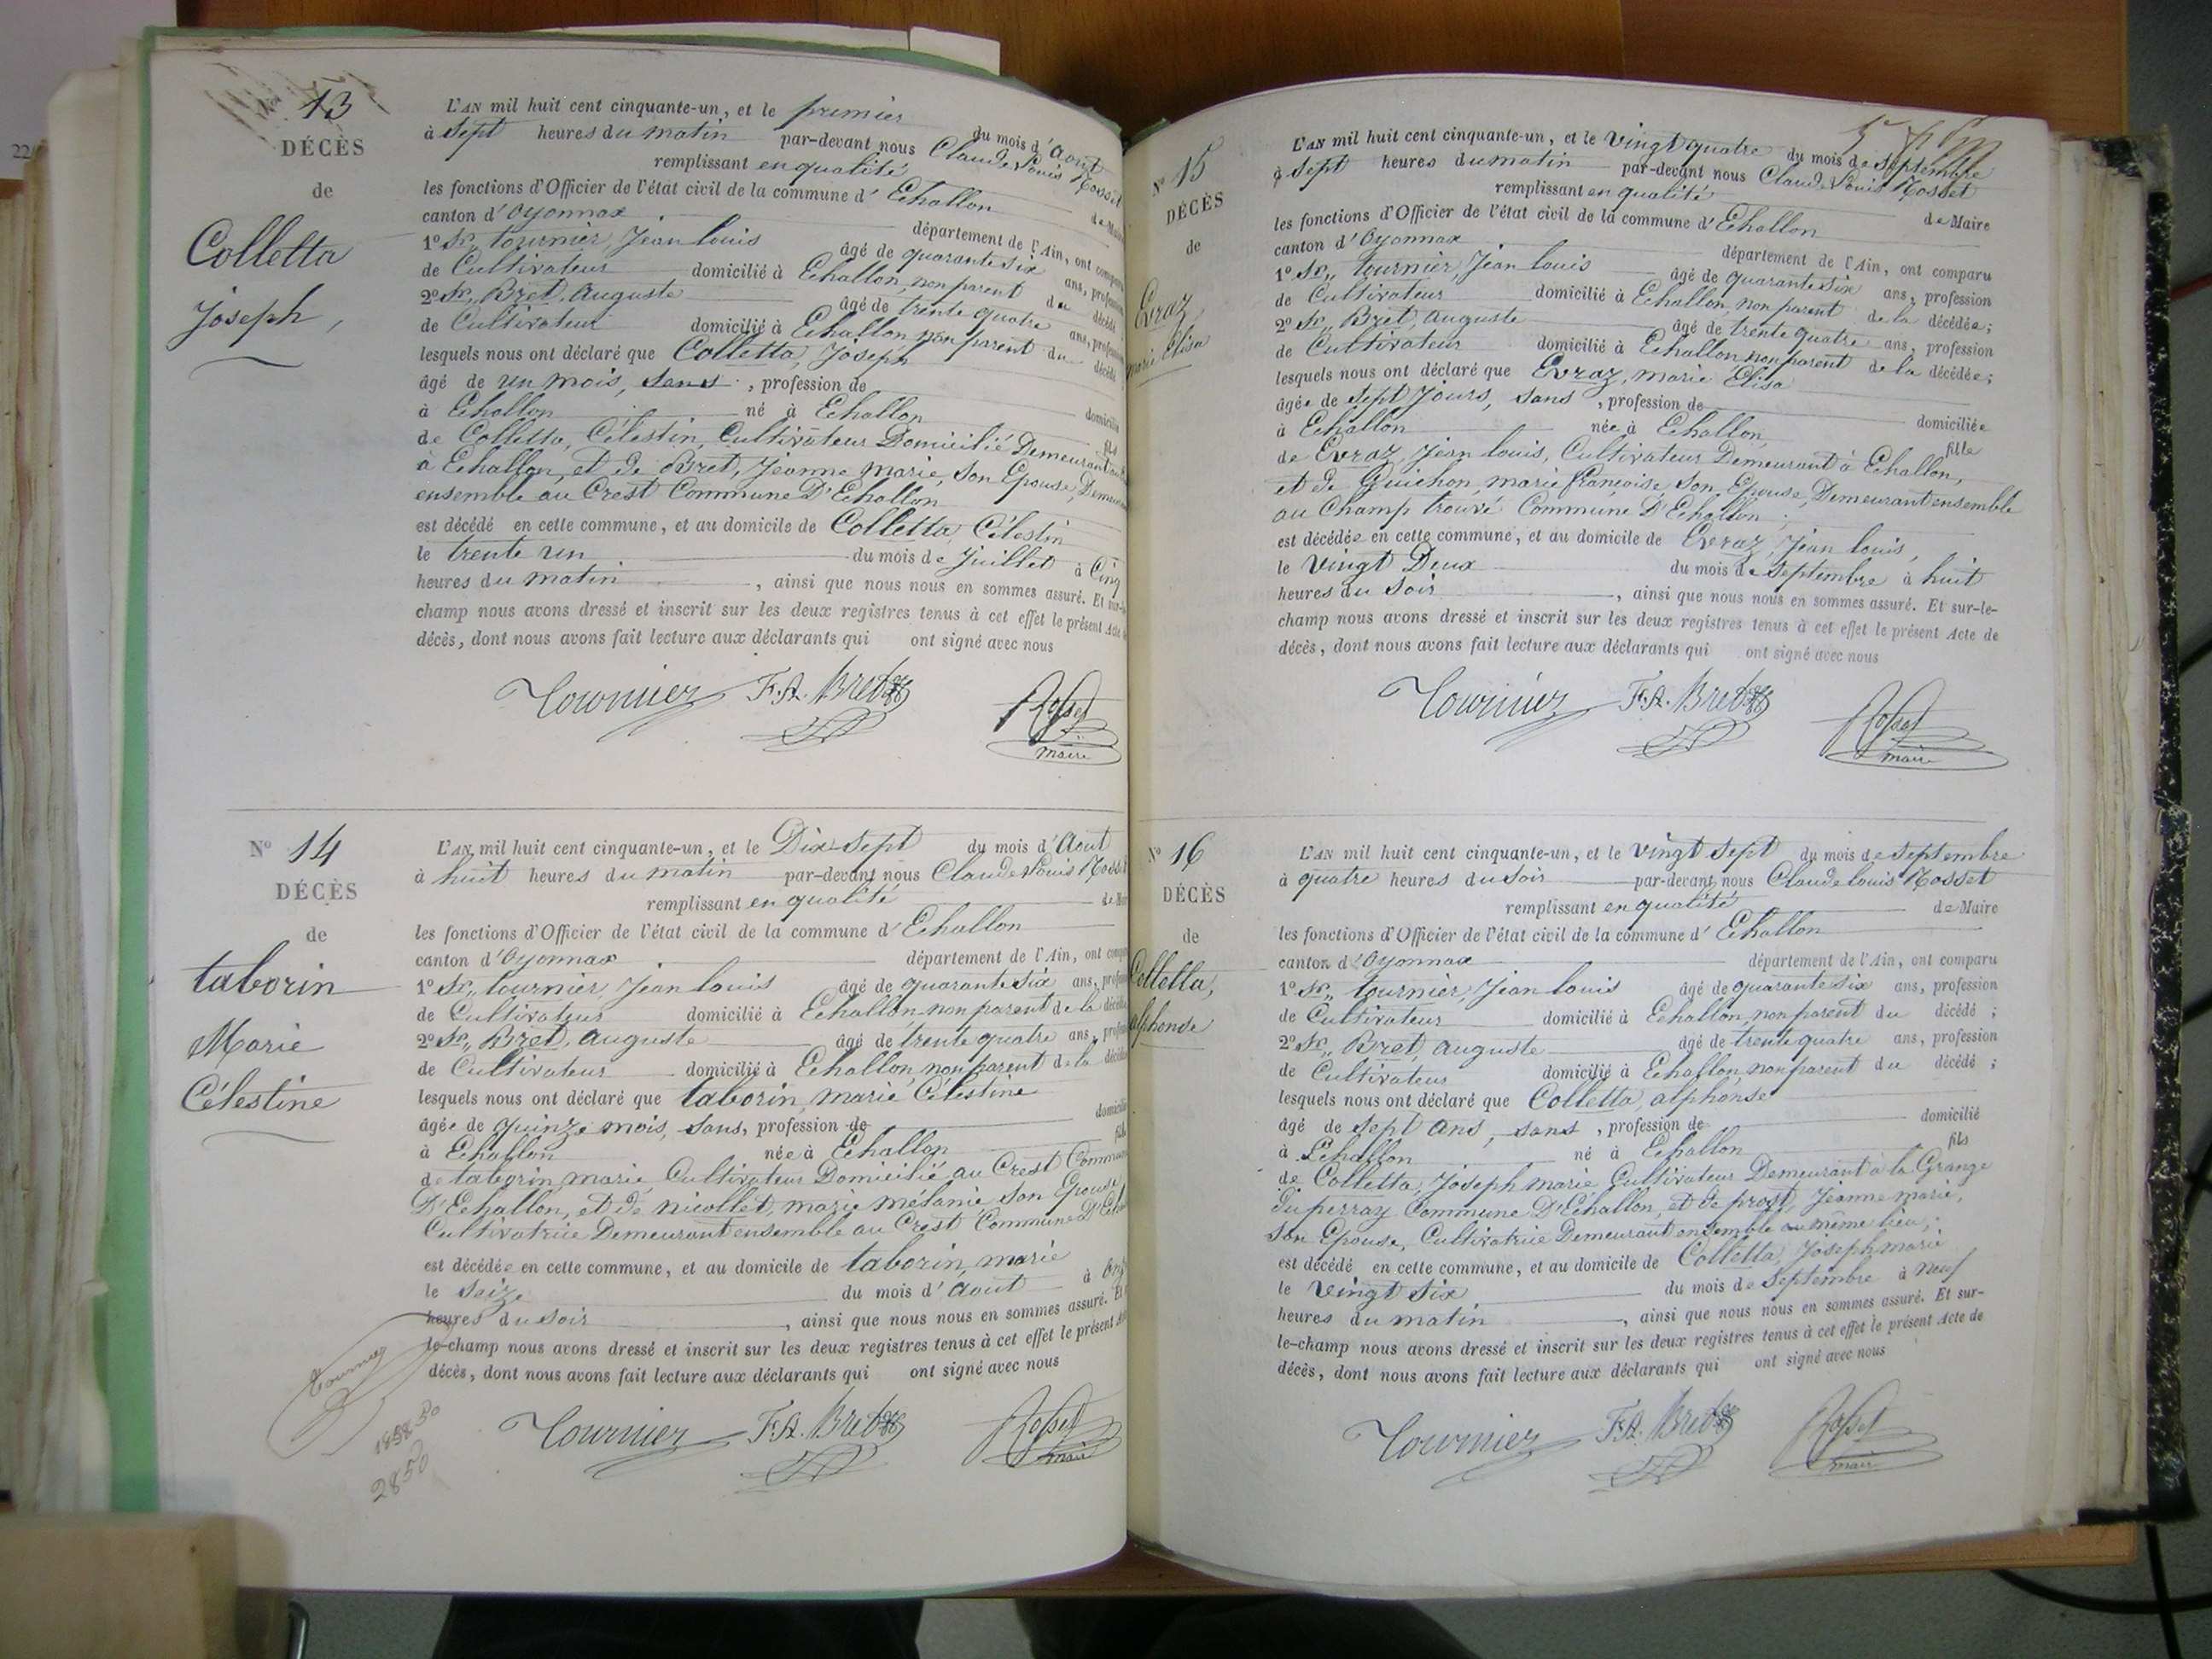 13
DÉCÈS
de
Colletta
Joseph,
L'AN mil huit cent cinquante-un, et le premier du mois d'Aout
à Sept heures du matin par-devant nous Claude Louis Rosset
remplissant en qualité de Maire
les fonctions d'Officier de l'état civil de la commune d'Echallon
canton d'Oyonnax département de l'Ain, ont comparu
1º Sr,, tournier, Jean louis âgé de quarante six ans, profession
de Cultivateur domicilié à Echallon, non parent du décédé
2º Sr,, Bret, auguste âgé de trente quatre ans, profession
de Cultivateur domicilié à Echallon non parent du décédé
lesquels nous ont déclaré que Colletta, Joseph
âgé de un mois, sans , profession de domicilié
à Echallon né à Echallon fils
de Colletta, Célestin, Cultivateur Domicilié Demeurant
à Echallon, et de Bret, Jeanne marie, son Epouse,
ensemble au Crest Commune D'Echallon
est décédé en cette commune, et au domicile de Colletta, Célestin
le trente un du mois de Juillet à Cinq
heures du matin , ainsi que nous nous en sommes assuré. Et sur-le-
champ nous avons dressé et inscrit sur les deux registres tenus à cet effet le présent Acte de
décès, dont nous avons fait lecture aux déclarants qui ont signé avec nous
Tournier F.A. Bret Rosset
maire
Nº 14
DÉCÈS
de
taborin
Marie
Célestine
L'AN mil huit cent cinquante-un, et le Dix-Sept du mois d'Aout
à huit heures du matin par-devant nous Claude Louis Rosset
remplissant en qualité de Maire
les fonctions d'Officier de l'état civil de la commune d'Echallon
canton d'Oyonnax département de l'Ain, ont comparu
1º Sr,, tournier, Jean louis âgé de quarante six ans, profession
de Cultivateur domicilié à Echallon non parent de la décédée
2º Sr,, Bret, auguste âgé de trente quatre ans, profession
de Cultivateur domicilié à Echallon, non parent de la décédée
lesquels nous ont déclaré que taborin, marie Célestine
âgée de quinze mois, sans, profession de domiciliée
à Echallon née à Echallon fille
de taborin, marie Cultivateur Domicilié au Crest Commune
D'Echallon, et de nicollet, marie mélanie son Epouse
Cultivatrice Demeurant ensemble au Crest Commune D'Echallon
est décédée en cette commune, et au domicile de taborin, marie
le Seize du mois d'Aout à
heures du Soir , ainsi que nous nous en sommes assuré. Et
le-champ nous avons dressé et inscrit sur les deux registres tenus à cet effet le présent
décès, dont nous avons fait lecture aux déclarants qui ont signé avec nous
2850
Tournier F.A. Bret Rosset
maire
Nº 15
DÉCÈS
de
Evraz,
marie Elisa
L'AN mil huit cent cinquante-un, et le Vingt quatre du mois de Septembre
à Sept heures du matin par-devant nous Claude Louis Rosset
remplissant en qualité de Maire
les fonctions d'Officier de l'état civil de la commune d'Echallon
canton d'Oyonnax département de l'Ain, ont comparu
1º Sr,, tournier, Jean louis âgé de quarante six ans, profession
de Cultivateur domicilié à Echallon, non parent de la décédée;
2º Sr,, Bret, auguste âgé de trente quatre ans, profession
de Cultivateur domicilié à Echallon non parent de la décédée;
lesquels nous ont déclaré que Evraz, marie Elisa
âgée de Sept Jours, sans , profession de domiciliée
à Echallon née à Echallon, fille
de Evraz, Jean louis, Cultivateur Demeurant à Echallon,
et de Guichon, marie françoise, son Epouse, Demeurant ensemble
au Champ trouvé Commune D'Echallon ;
est décédée en cette commune, et au domicile de Evraz, Jean louis,
le Vingt Deux du mois de Septembre à huit
heures du Soir , ainsi que nous nous en sommes assuré. Et sur-le-
champ nous avons dressé et inscrit sur les deux registres tenus à cet effet le présent Acte de
décès, dont nous avons fait lecture aux déclarants qui ont signé avec nous
Tournier F.A. Bret Rosset
maire
Nº 16
DÉCÈS
de
Colletta,
alphonse
L'AN mil huit cent cinquante-un, et le Vingt Sept du mois de Septembre
à quatre heures du Soir par-devant nous Claude louis Rosset
remplissant en qualité de Maire
les fonctions d'Officier de l'état civil de la commune d'Echallon
canton d'Oyonnax département de l'Ain, ont comparu
1º Sr,, tournier, Jean louis âgé de quarante six ans, profession
de Cultivateur domicilié à Echallon, non parent du décédé ;
2º Sr,, Bret, auguste âgé de trente quatre ans, profession
de Cultivateur domicilié à Echallon, non parent du décédé ;
lesquels nous ont déclaré que Colletta, alphonse
âgé de Sept Ans, sans , profession de domicilié
à Echallon né à Echallon fils
de Colletta, Joseph marie Cultivateur Demeurant à la Grange
du perray Commune D'Echallon, et de prost, Jeanne marie,
Son Epouse, Cultivatrice Demeurant ensemble au même lieu;
est décédé en cette commune, et au domicile de Colletta, Joseph marie
le Vingt Six du mois de Septembre à neuf
heures du matin , ainsi que nous nous en sommes assuré. Et sur-
le-champ nous avons dressé et inscrit sur les deux registres tenus à cet effet le présent Acte de
décès, dont nous avons fait lecture aux déclarants qui ont signé avec nous
Tournier F.A. Bret Rosset
maire